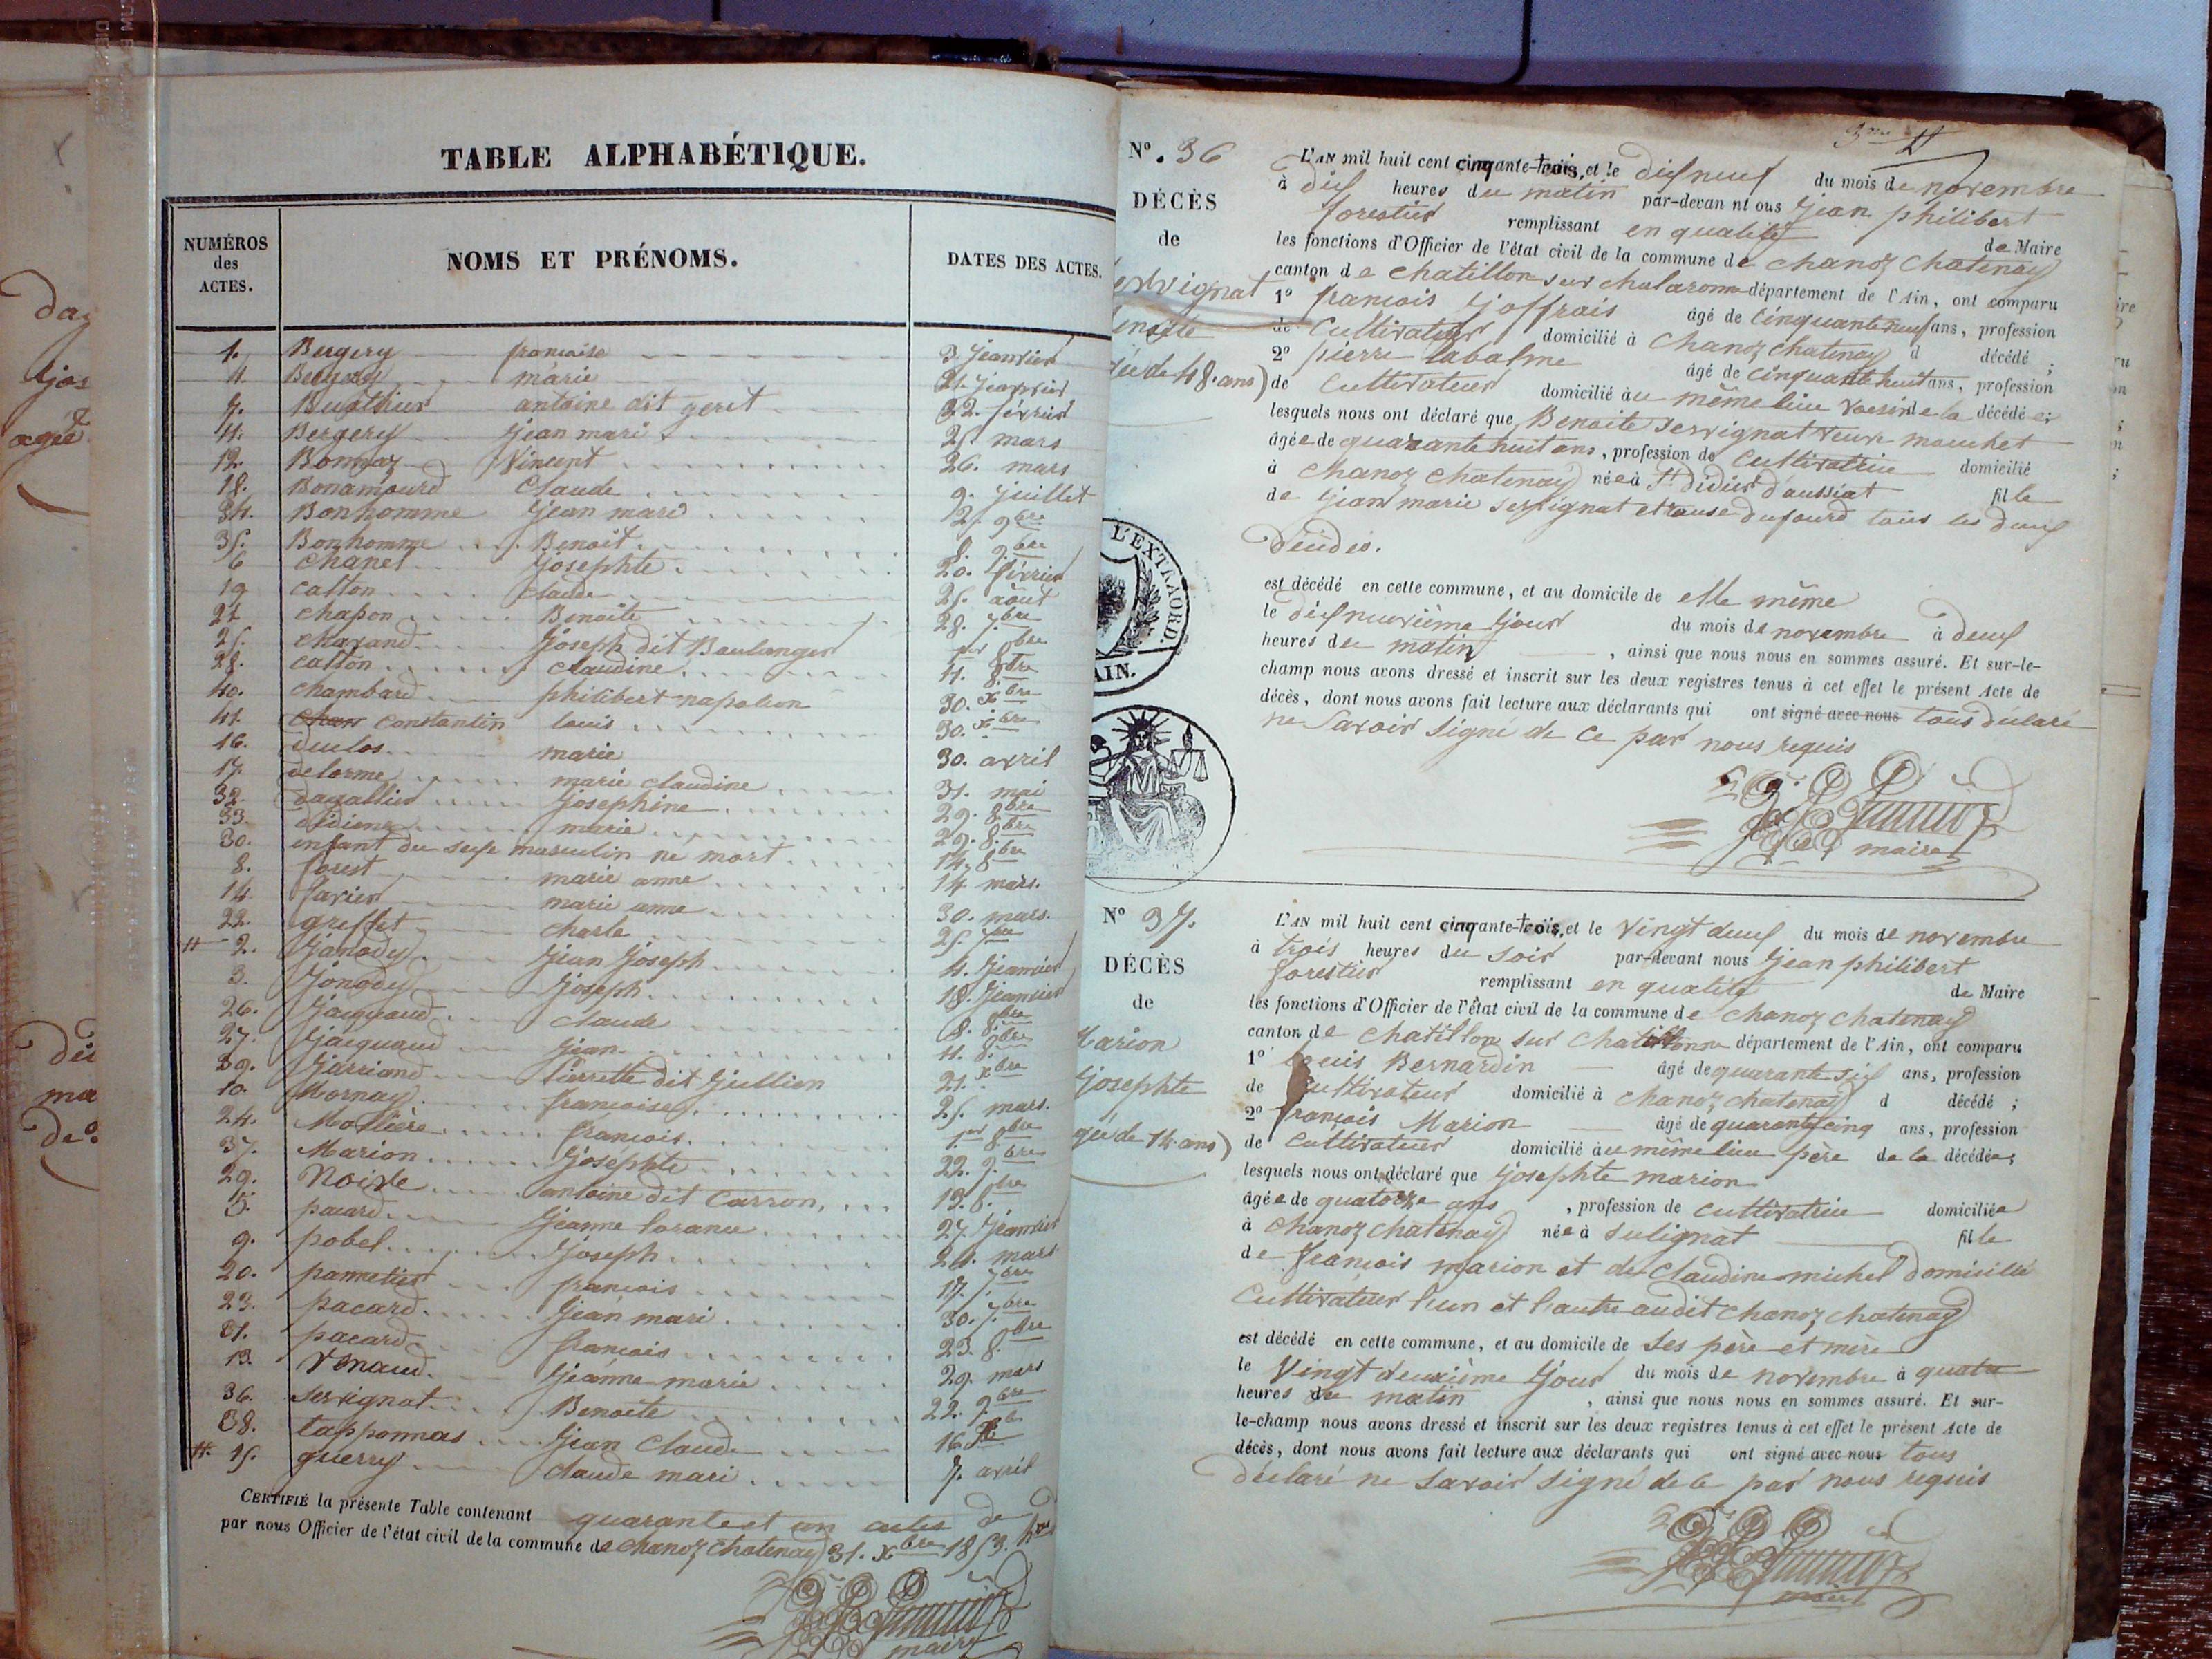 TABLE ALPHABÉTIQUE.
NUMÉROS des ACTES.
NOMS ET PRÉNOMS.
DATES DES ACTES.
1. Bergery françoise 3 Jeanvier
4. Bergery marie 21. Jeanvier
7. Buathier antoine dit gerit 22. février
11. Bergery jean mari 25 mars
12. Bonnaz Vincent 26. mars
18. Bonamourd Claude 9. juillet
34. Bonhomme Jean mari 2. 9bre
35. Bonhomme Benoit 8. 9bre
6 Chanel Josephte 20. février
19 catton Claude 25. août
21 chapon Benoite 28. 7bre
25. charand Joseph dit Boulanger 1er 8bre
28. catton claudine 11. 8bre
40. chambard philibert napoleon 30. xbre
41. constantin louis 30. xbre
16. duclos marie 30. avril
17. delorme marie claudine 31. mai
32. dagallier Josephine 29. 8bre
33. didienne marie 29. 8bre
30. enfant du sexe masculin né mort 14. 8bre
8. forest marie anne 14 mars.
14. favier marie anne 30. mars.
22. greffet charle 25. 7bre
# 2. Janody Jean Joseph 4. Jeanvier
3. Jonody Joseph 18. Jeanvier
26. Jacquand claude 8. 8bre
27. Jacquand Jean 11. 8bre
39. Jarriand Pierrette dit Jullien 21. xbre
10. Mornay françoise 25. mars.
24. Mollière françois 1er 8bre
37. Marion Joséphte 22. 9bre
29. Noirde antoine dit Carron 13. 8bre
5. pacard Jeanne lorance 27. Jeanvier
9. pobel Joseph 21. mars
20. pannetier francois 17. 7bre
23. pacard Jean mari 30. 7bre
31. pacard francois 23. 8bre
13. Venaud Jeanne marie 29. mars
36. servignat Benoite 22. 9bre
38. tapponnas Jean Claude 16
# 15. guerry claude mari 7. avril
CERTIFIÉ la présente Table contenant quarante et un actes de
par nous Officier de l'état civil de la commune de chanoz chatenay 31. xbre 1853.
maire
N°. 36
DÉCÈS
de
servignat
enoite
gée de 48. ans)
L'AN mil huit cent cinquante-trois, et le dix neuf du mois de novembre
à dix heures du matin par-devan nt ous jean philibert
forestier remplissant en qualité de Maire
les fonctions d'Officier de l'état civil de la commune de chanoz chatenay
canton de chatillon sur chalaronne département de l'Ain, ont comparu
1° francois Joffrais âgé de cinquante neuf ans, profession
de Cultivateur domicilié à Chanoz chatenay d décédé ;
2° pierre labalme âgé de cinquante huit ans, profession
de Cultivateur domicilié au même lieu voisin de la décédée;
lesquels nous ont déclaré que Benoite servignat veuve mouchet
âgée de quarante huit ans, profession de Cultivatrice domicilié
à Chanoz chatenay née à St didier d'aussiat fille
de jean marie servignat et rause dufourd tous les deux
décidés.
est décédé en cette commune, et au domicile de elle même
le dix neuvième jour du mois de novembre à deux
heures du matin, ainsi que nous nous en sommes assuré. Et sur-le-
champ nous avons dressé et inscrit sur les deux registres tenus à cet effet le présent Acte de
décès, dont nous avons fait lecture aux déclarants qui ont signé avec nous tous déclaré
ne Savoir Signé de ce par nous requis
maire
L'EXTRAORD.
AIN.
N° 37.
DÉCÈS
de
Marion
Josephte
gée de 14 ans)
L'AN mil huit cent cinquante-trois, et le vingt deux du mois de novembre
à trois heures du soir par-devant nous jean philibert
forestier remplissant en qualité de Maire
les fonctions d'Officier de l'état civil de la commune de chanoz chatenay
canton de chatillon sur département de l'Ain, ont comparu
1° Louis Bernardin âgé de quarante six ans, profession
de Cultivateur domicilié à chanoz chatenay d décédé ;
2° françois Marion âgé de quarante cinq ans, profession
de Cultivateur domicilié au même lieu père de la décédée;
lesquels nous ont déclaré que josephte marion
âgée de quatorze ans, profession de cultivatrice domiciliée
à chanoz chatenay née à sulignat fille
de francois marion et de Claudine michel domicilié
Cultivateur l'un et l'autre audit chanoz chatenay
est décédé en cette commune, et au domicile de ses père et mère
le Vingt deuxième Jour du mois de novembre à quatre
heures du matin, ainsi que nous nous en sommes assuré. Et sur-
le-champ nous avons dressé et inscrit sur les deux registres tenus à cet effet le présent Acte de
décès, dont nous avons fait lecture aux déclarants qui ont signé avec nous tous
déclaré ne savoir signé de ce par nous requis
maire